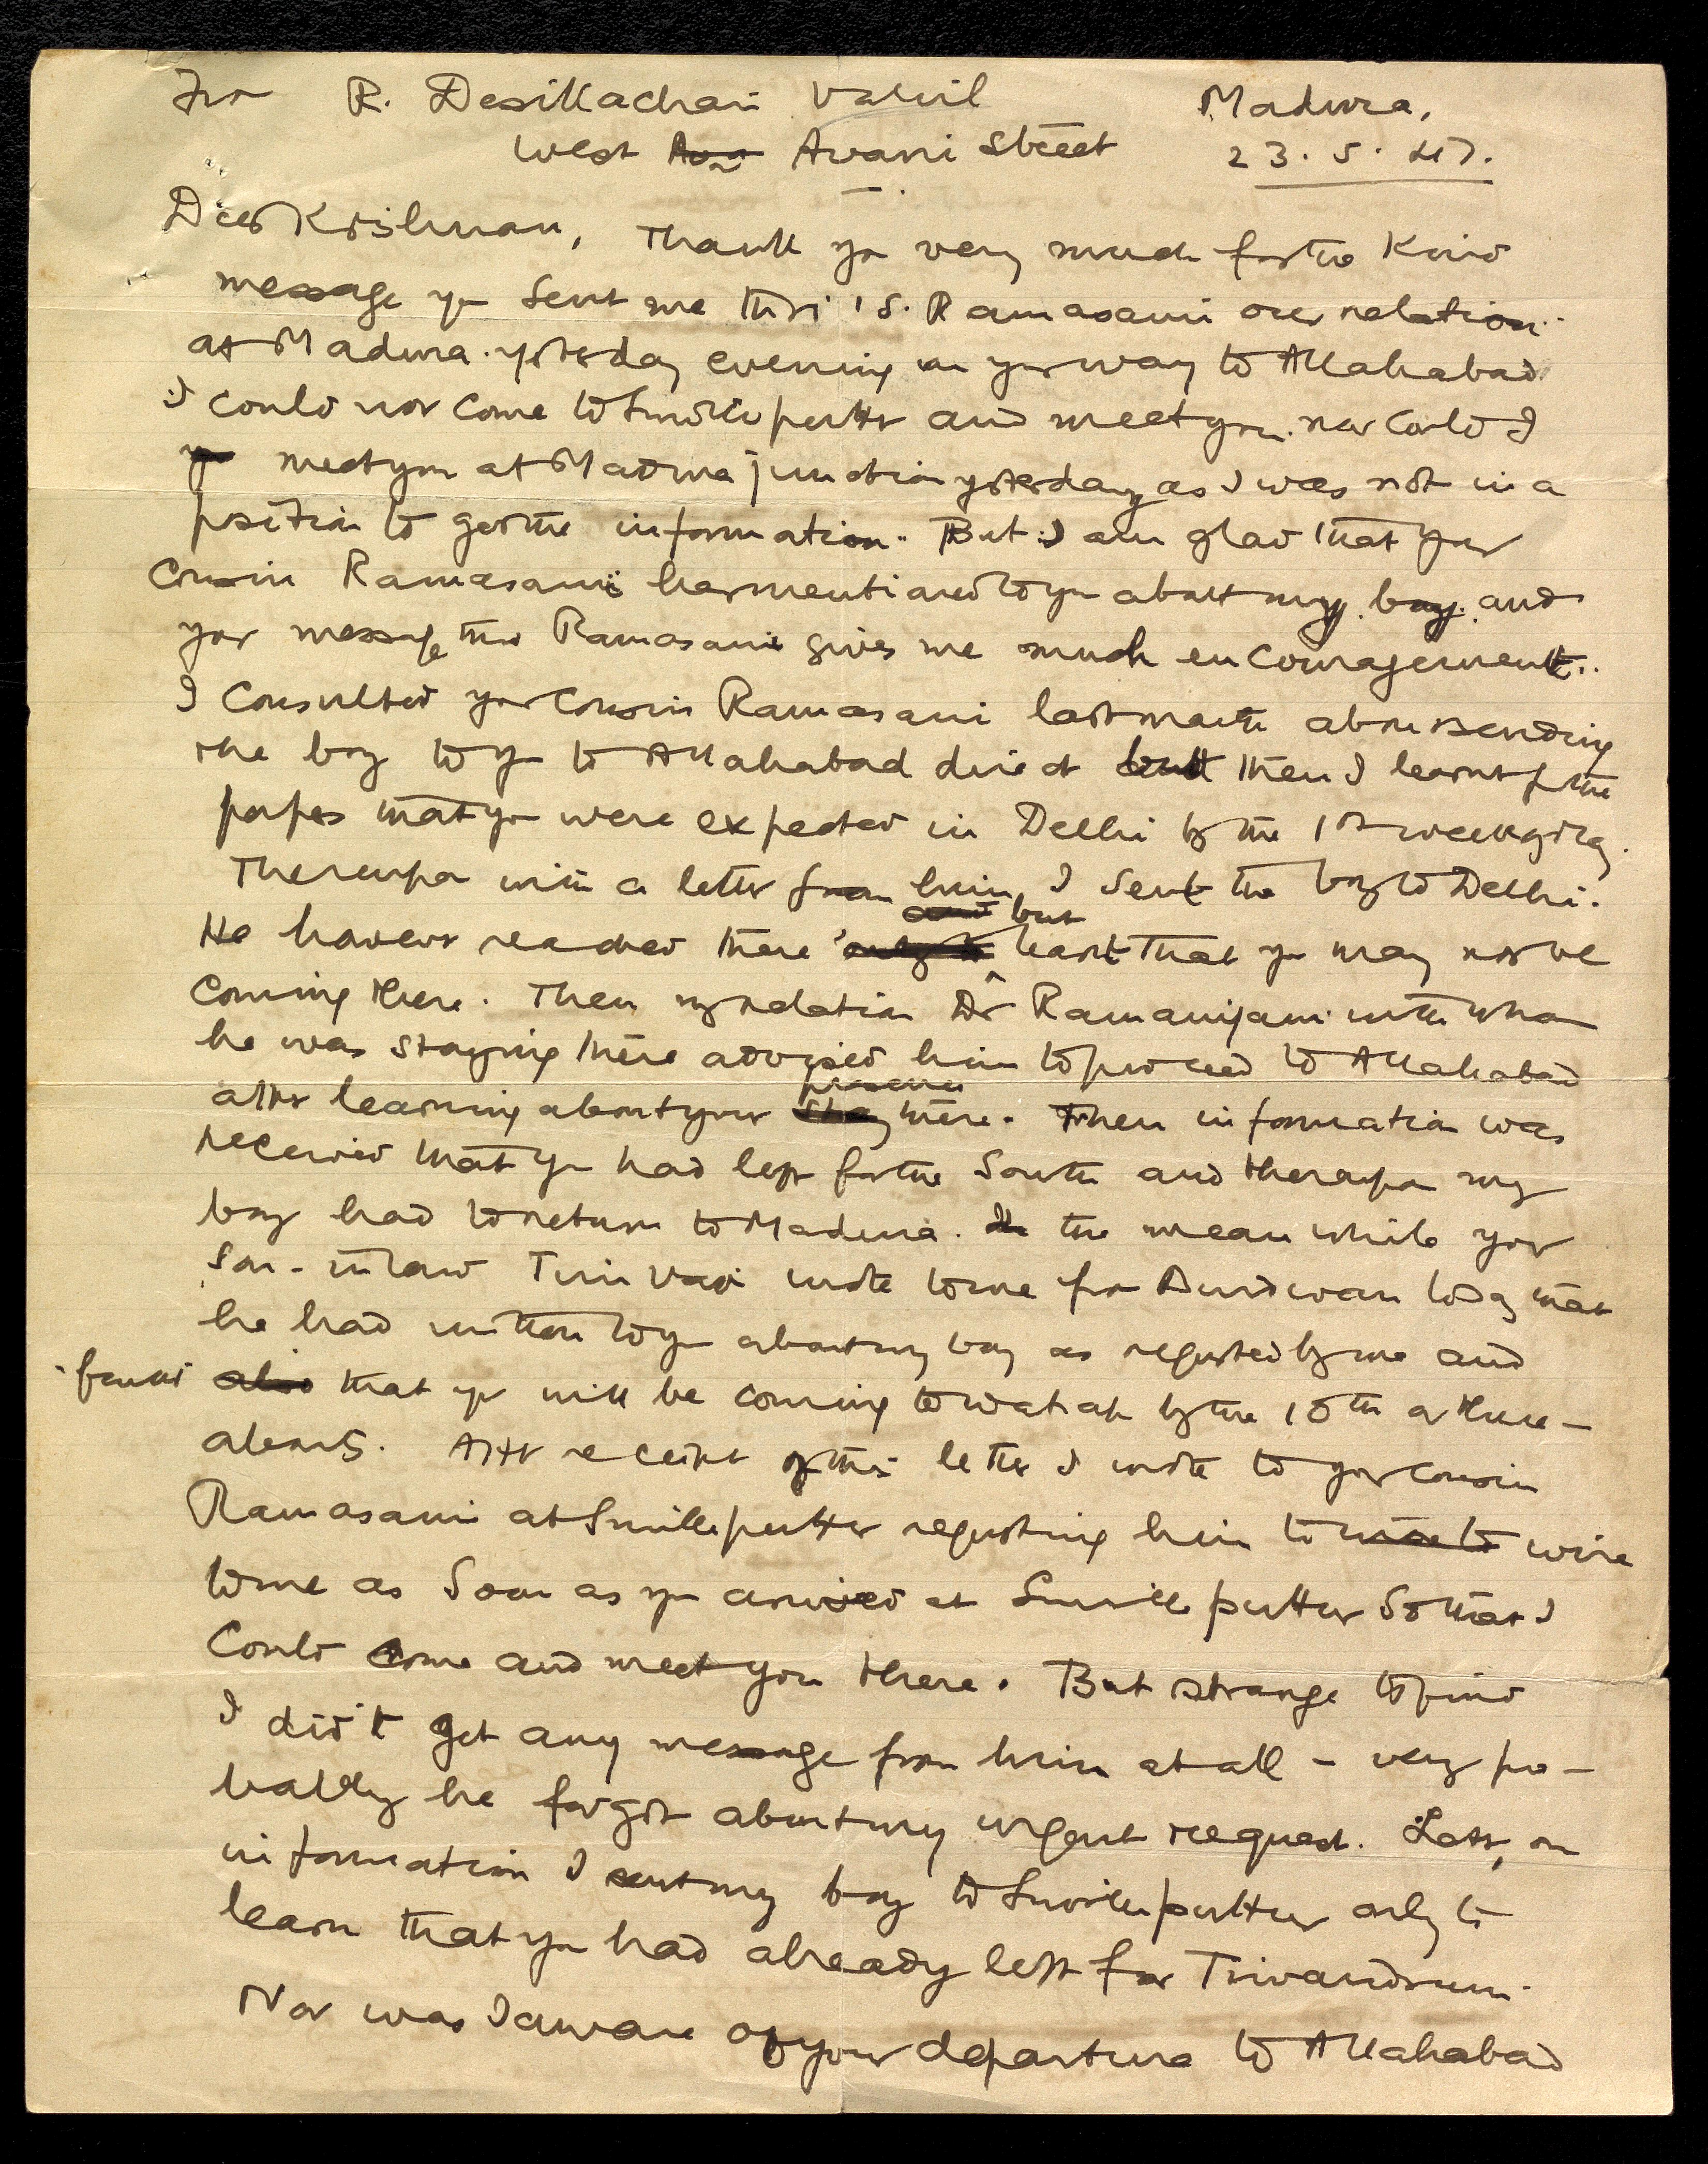 From R. Desikachari Vakil Madura,
West Avani Street 23. 5. 47.
Dear Krishnan, Thank you very much for the kind
message you sent me thro' S. Ramasami our relation
at Madura yesterday evening on your way to Allahabad
I could not come to Srivilliputtur and meet you. nor could I
meet you at Madura junction yesterday as I was not in a
position to get the information. But I am glad that your
cousin Ramasami has mentioned to you about my boy and
your message thro Ramasami gives me much encouragement.
I consulted your cousin Ramasami last month about sending
the boy to you to Allahabad direct but then I learnt from the
papers that you were expected in Delhi by the 1st week of
Thereupon with a letter from him, I sent the boy to Delhi.
He however reached there but learnt that you may not be
coming there. Then my relation Dr Ramanujam with whom
he was staying there advised him to proceed to Allahabad
after learning about your presence there. Then information was
received that you had left for the South and thereupon my
boy had to return to Madura. In the mean while your
Son-in law wrote to me from Burdwan that
he had written to you about my boy as requested by me and
that you will be coming to by the 10th or there-
abouts. After receipt of this letter I wrote to your cousin
Ramasami at Srivilliputtur requesting him to wire
to me as soon as you arrived at Srivilliputtur so that I
could come and meet you there. But strange to find
I did't get any message from him at all - very pro-
bably he forgot about my urgent request. Later, on
information I sent my boy to Srivilliputtur only to
learn that you had already left for Trivandrum.
Nor was I aware of your departure to Allahabad